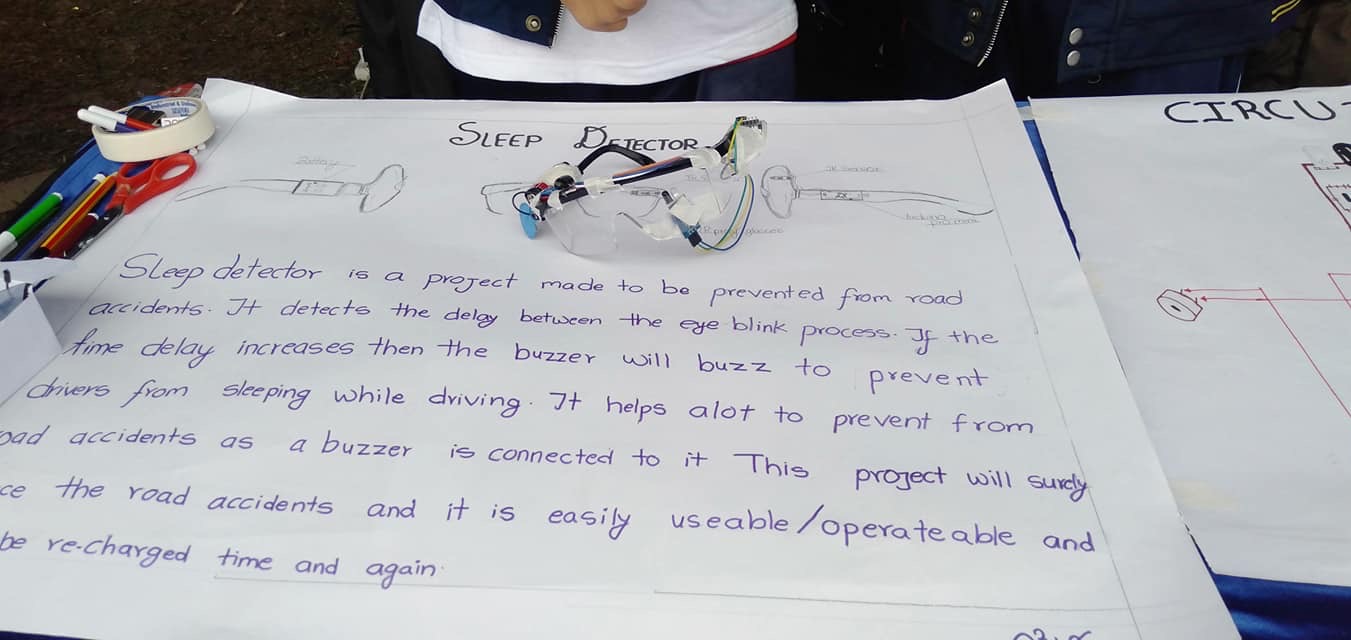 SLEEP DETECTOR
CIRCU
Battery
IR sensor
Sleep detector is a project made to be prevented from road
accidents. It detects the delay between the eye blink process. If the
time delay increases then the buzzer will buzz to prevent
drivers from sleeping while driving. It helps alot to prevent from
oad accidents as a buzzer is connected to it This project will surely
ce the road accidents and it is easily useable/operateable and
be re-charged time and again.